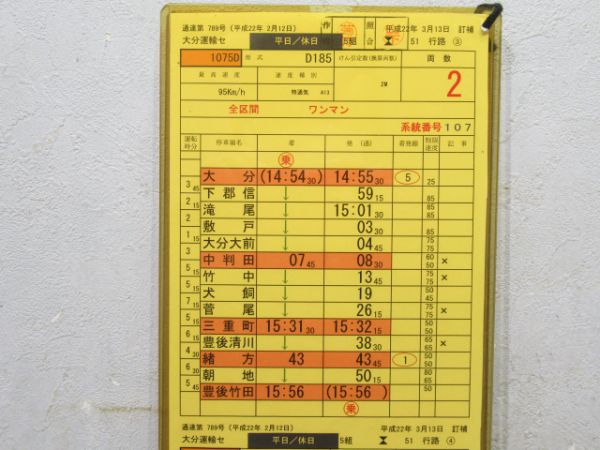 通達第 789号 (平成22年 2月12日) 作 組 平成22年 3月13日 訂補
大分運輸セ 平日/休日 5組 合 51 行路 ③
1075D 形式 D185 けん引定数(換算両数) 両数
最高速度 速度種別 2M 2
95Km/h 特通気 A13
全区間 ワンマン
系統番号107
運転時分 停車場名 着 発(通) 着発線 制限速度 記事
乗
大分 (14:54 30) 14:55 30 5 25
3 45
下郡信 ↓ 59 15 85
2 15
滝尾 ↓ 15:01 30 85
2
敷戸 ↓ 03 30 85
1 15
大分大前 ↓ 04 45 75 75
3
中判田 07 45 08 30 60 50 ×
5 15
竹中 ↓ 13 45 75 75 ×
5 15
犬飼 ↓ 19 45
7 15
菅尾 ↓ 26 15 75 ×
5 15
三重町 15:31 30 15:32 15 50 50
6 15
豊後清川 ↓ 38 30 65 ×
4 30
緒方 43 43 45 1 50 50
6 30
朝地 ↓ 50 15 80 65
5 45
豊後竹田 15:56 (15:56) 65 50
乗
通達第 789号 (平成22年 2月12日) 平成22年 3月13日 訂補
大分運輸セ 平日/休日 5組 51 行路 ④